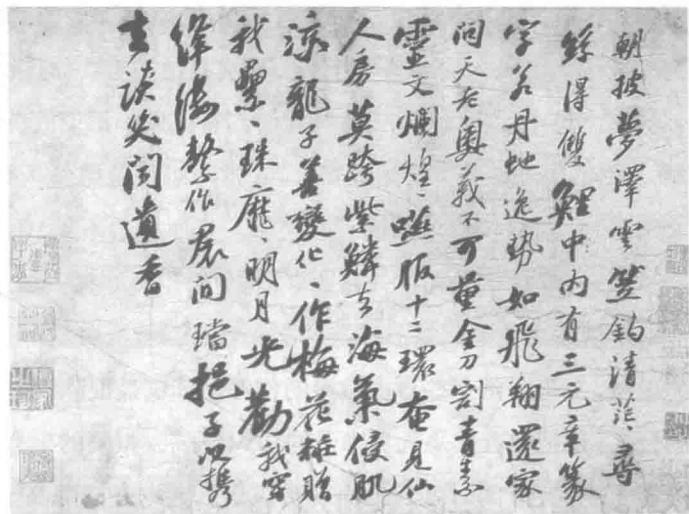 朝披夢澤雲笠釣清茫々尋
絲得雙鯉中內有三元章篆
字若丹虵逸勢如飛翔還家
問天老奧義不可量金刀割青素
靈文爛煌々嚥服十二環奄見仙
人房莫跨紫鱗去海氣侵肌
涼龍子善變化々作梅花粧贈
我纍々珠靡々明月光勸我穿
絳縷繫作裙間璫挹子以攜
去談笑聞遺香